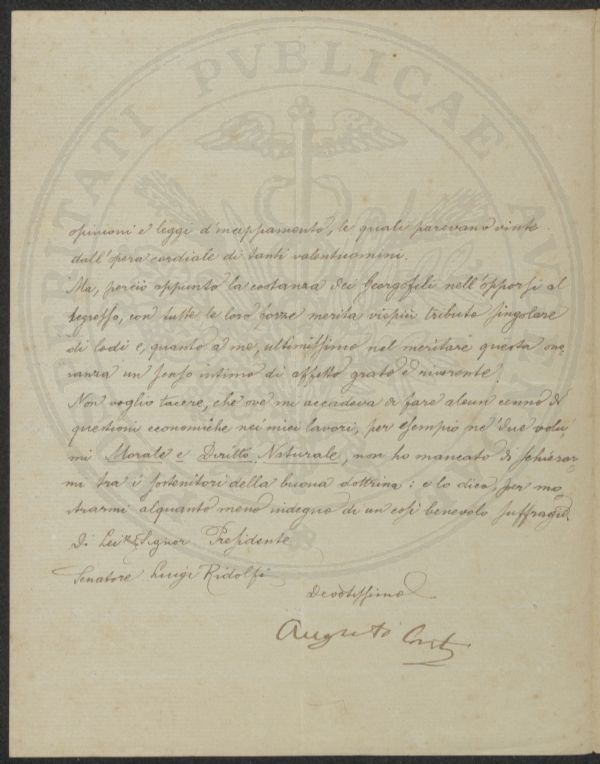 PROSPERITATI PVBLICAE AV
opinioni e leggi d'inceppamento, le quali parevano vinte
dall'opera cordiale di tanti valentuomini.
Ma, perciò appunto la costanza dei Georgofili nell'opporsi al
regresso, con tutte le loro forze merita viepiù tributo singolare
di lodi e, quanto a me, ultimissimo nel meritare questa ono,
ranza un senso intimo di affetto grato e riverente.
Non voglio tacere, che ove mi accadeva di fare alcun cenno di
questioni economiche nei miei lavori, per esempio ne' due volu,
mi Morale e Diritto Naturale, non ho mancato di schierar,
mi tra i sostenitori della buona dottrina: e lo dico, per mo,
strarmi alquanto meno indegno di un così benevolo suffragio.
Di Lei Signor Presidente
Senatore Luigi Ridolfi
devotissimo
Augusto Conti